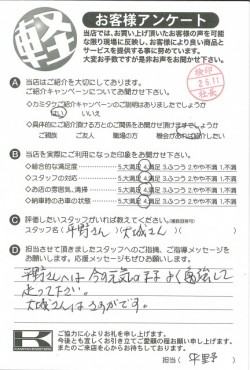 軽
お客様アンケート
当店では、お買い上げ頂いたお客様の声を可能
な限り現場に反映し、お客様により良い商品と
サービスを提供する事に努めています。
大変お手数ですが是非お声をお聞かせ下さい。
A 当店はご紹介を大切にしております。
ご紹介キャンペーンについてお聞かせ下さい。
◇カミタケご紹介キャンペーンのご説明はありましたでしょうか
はい いいえ
◇具体的にご紹介頂ける方とのご関係をお聞かせ頂けますでしょうか
ご親族 ご友人 職場の方 機会があればご紹介したい
検印
社長
B 当店を実際にご利用になった印象をお聞かせ下さい。
◇総合的な満足度 5.大満足 4.満足 3.ふつう 2.やや不満 1.不満
◇スタッフの対応 5.大満足 4.満足 3.ふつう 2.やや不満 1.不満
◇お店の雰囲気、清掃 5.大満足 4.満足 3.ふつう 2.やや不満 1.不満
◇納車時のお車の状態 5.大満足 4.満足 3.ふつう 2.やや不満 1.不満
C 評価したいスタッフがいれば教えてください。(複数回答可)
スタッフ名( 平野さん )( 大城さん )
D 担当させて頂きましたスタッフへのご指摘、ご指導メッセージを
お願いします。応援メッセージもぜひお願いします!
平野さんへは 今の元気のまま よく勉強して
走って下さい。
大城さんはさすがです。
K
ご協力に心よりお礼を申し上げます。
今後とも宜しくお引き立てご愛顧の程お願い申し上げます。
またのご来店を心からお待ちしております。
担当( 平野 )